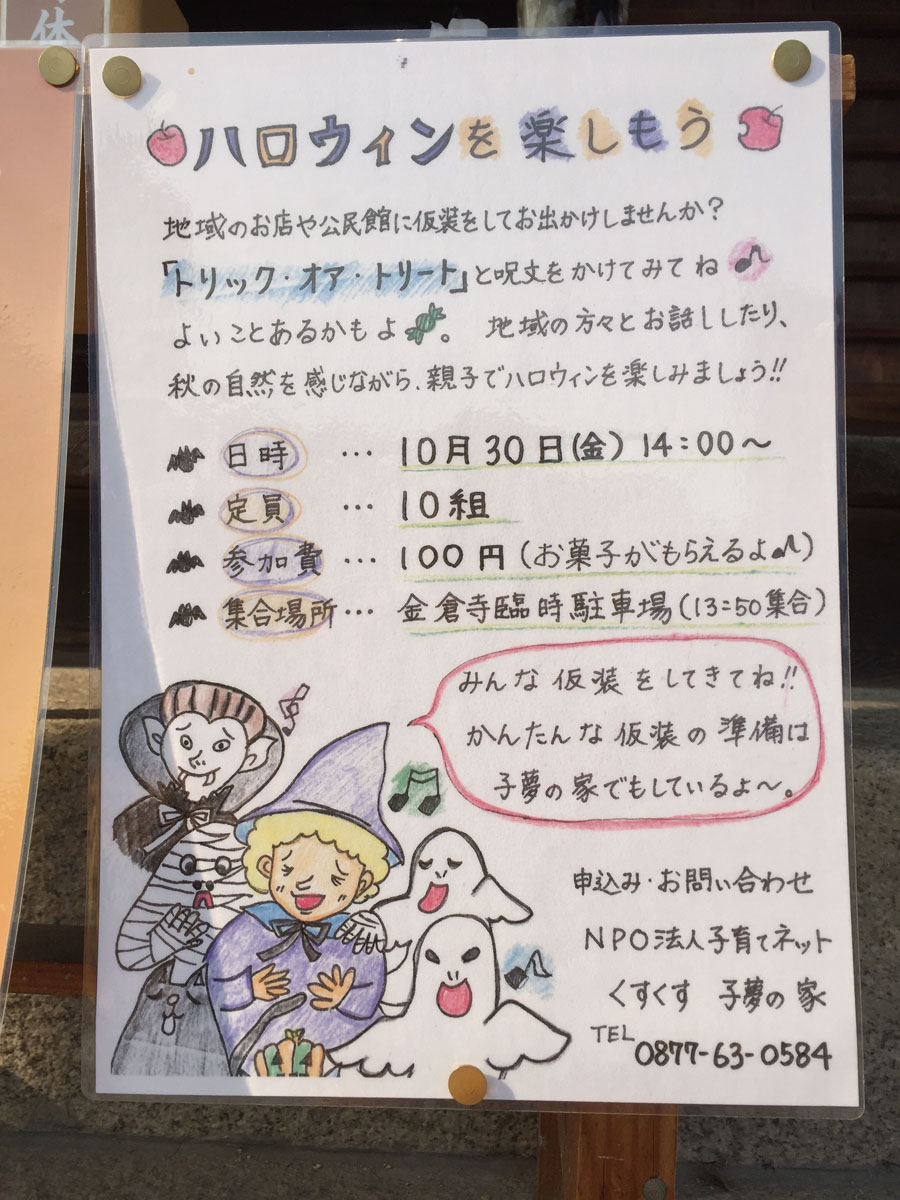 休
ハロウィンを楽しもう
地域のお店や公民館に仮装をしてお出かけしませんか?
「トリック・オア・トリート」と呪文をかけてみてね
よいことあるかもよ。 地域の方々とお話ししたり、
秋の自然を感じながら、親子でハロウィンを楽しみましょう!!
日時 … 10月30日(金) 14:00〜
定員 … 10組
参加費 … 100円(お菓子がもらえるよ♪)
集合場所 … 金倉寺臨時駐車場(13:50集合)
みんな仮装をしてきてね!!
かんたんな仮装の準備は
子夢の家でもしているよ〜。
申込み・お問い合わせ
NPO法人子育てネット
くすくす 子夢の家
TEL 0877-63-0584